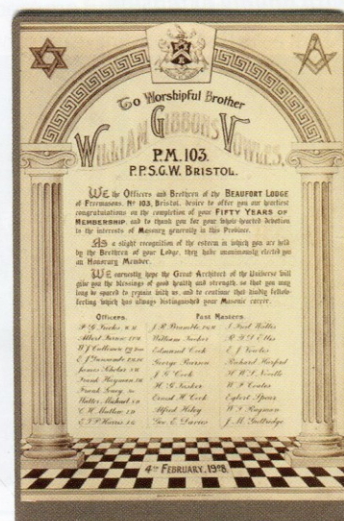 To Worshipful Brother
WILLIAM GIBBONS VOWLES,
P.M. 103.
P.P.S.G.W. BRISTOL.
WE the Officers and Brethren of the BEAUFORT LODGE
of Freemasons, Nº 103, Bristol, desire to offer you our heartiest
congratulations on the completion of your FIFTY YEARS OF
MEMBERSHIP and to thank you for your whole hearted devotion
to the interests of Masonry generally in this Province.
As a slight recognition of the esteem in which you are held
by the Brethren of your Lodge, they have unanimously elected you
an Honorary Member.
WE earnestly hope the Great Architect of the Universe will
give you the blessings of good health and strength, so that you may
long be spared to rejoin with us, and to continue that kindly fellow-
feeling which has always distinguished your Masonic career.
Officers. Past Masters.
J. R. Bramble
William Tucker
Edmund Cook
George Pearson
J. G. Cook
H. G. Tucker
Ernest H. Cook
Alfred Riley
Geo E. Davies
E. J. Vowles
Richard Harford
W. F. Coates
Egbert Spear
J. M. Guttridge
Albert
James Scholar
Frank
Walter
4TH FEBRUARY, 1908.